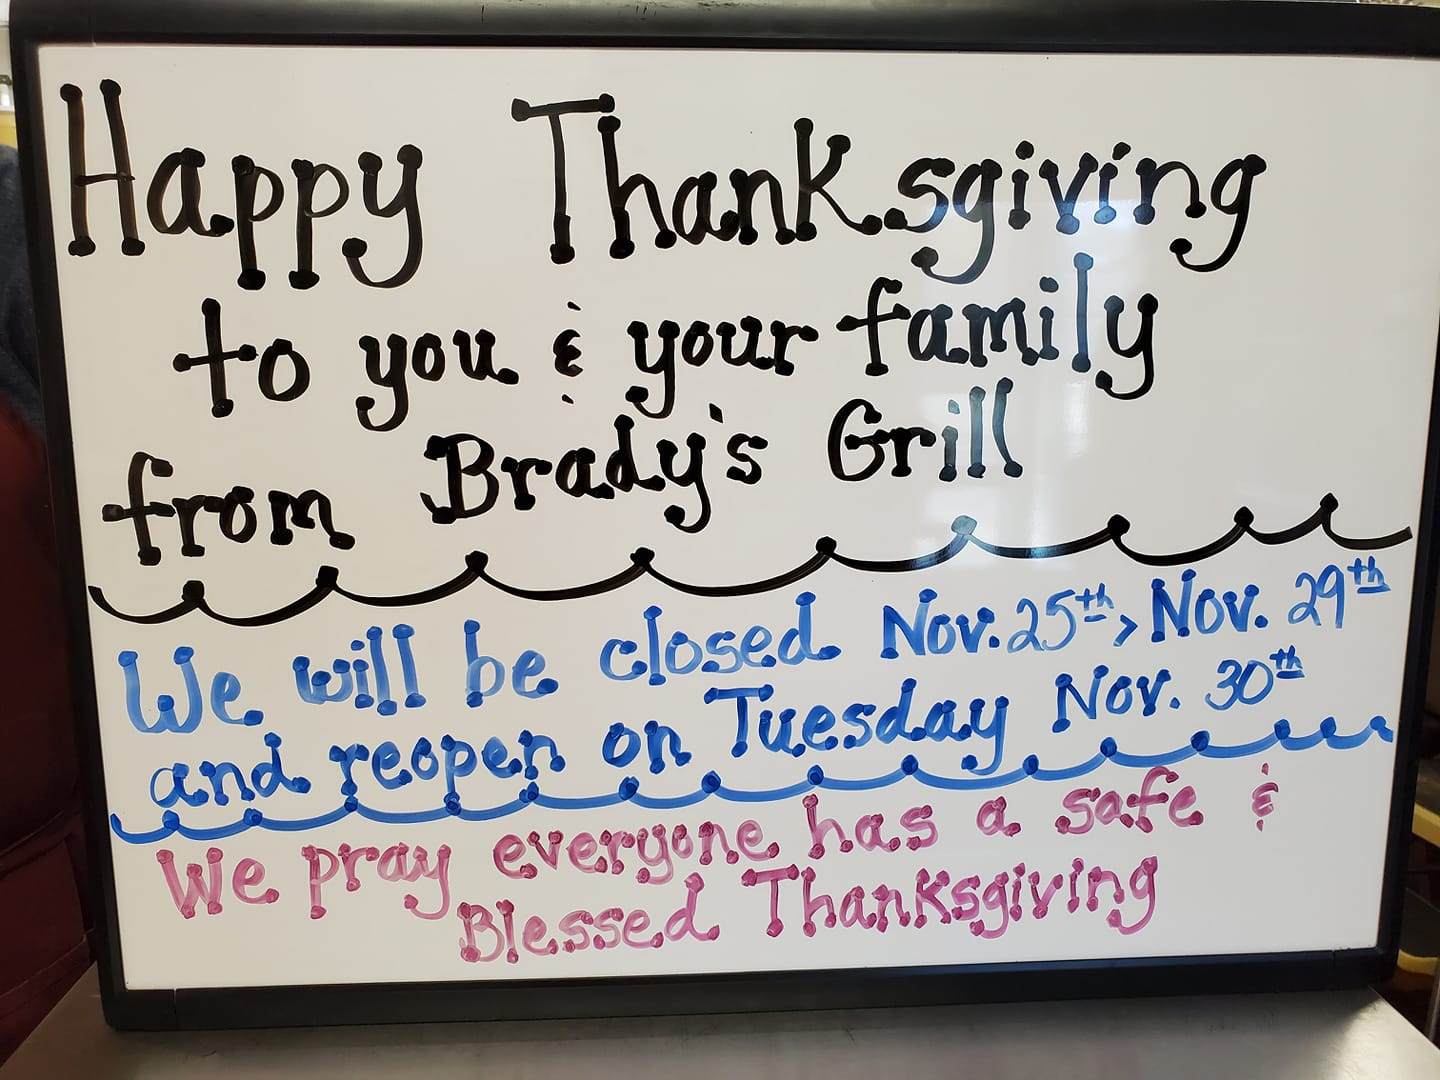 Happy Thanksgiving
to you & your family
from Brady's Grill
We will be closed Nov. 25th, Nov. 29th
and reopen on Tuesday Nov. 30th
We pray everyone has a safe &
Blessed Thanksgiving